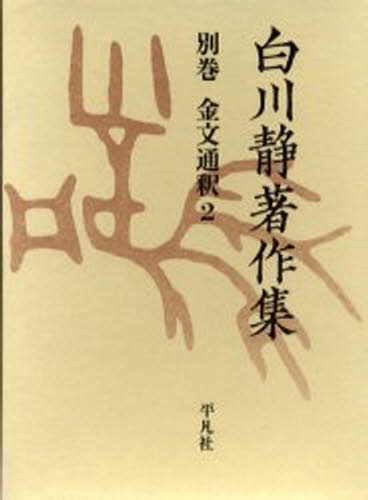 白川静著作集
別巻 金文通釈 2
平凡社